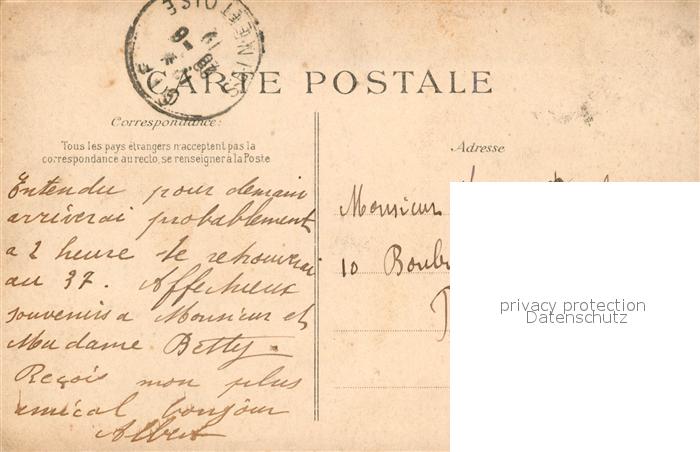 SEINE ET OISE
CARTE POSTALE
Correspondance:
Tous les pays étrangers n'acceptent pas la
correspondance au recto, se renseigner à la Poste
Adresse
Entendu pour demain
arriverai probablement
a 2 heure te retrouverai
au 37. Affectueux
souvenirs a Monsieur et
Madame Betty.
Reçois mon plus
amical bonjour
Albert
Monsieur
10 Boul
privacy protection
Datenschutz